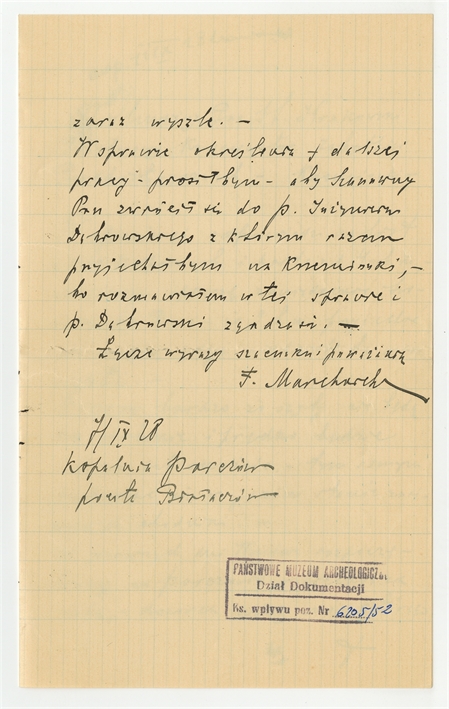 zaraz wyszle. –
W sprawie określenia dalszej
pracy – prosiłbym – aby Szanowny
Pan zwrócił się do p. Inżyniera
Dąbrowskiego z którym razem
przyjechałbym na Krzemionki, –
bo rozmawiałem w tej sprawie i
p. Dąbrowski zgadza się. –
Łączę wyrazy szacunku i poważania
F.
7/IX 28
Kopalnia
poczta
PAŃSTWOWE MUZEUM ARCHEOLOGICZNE
Dział Dokumentacji
Ks. wpływu poz. Nr 6205/52